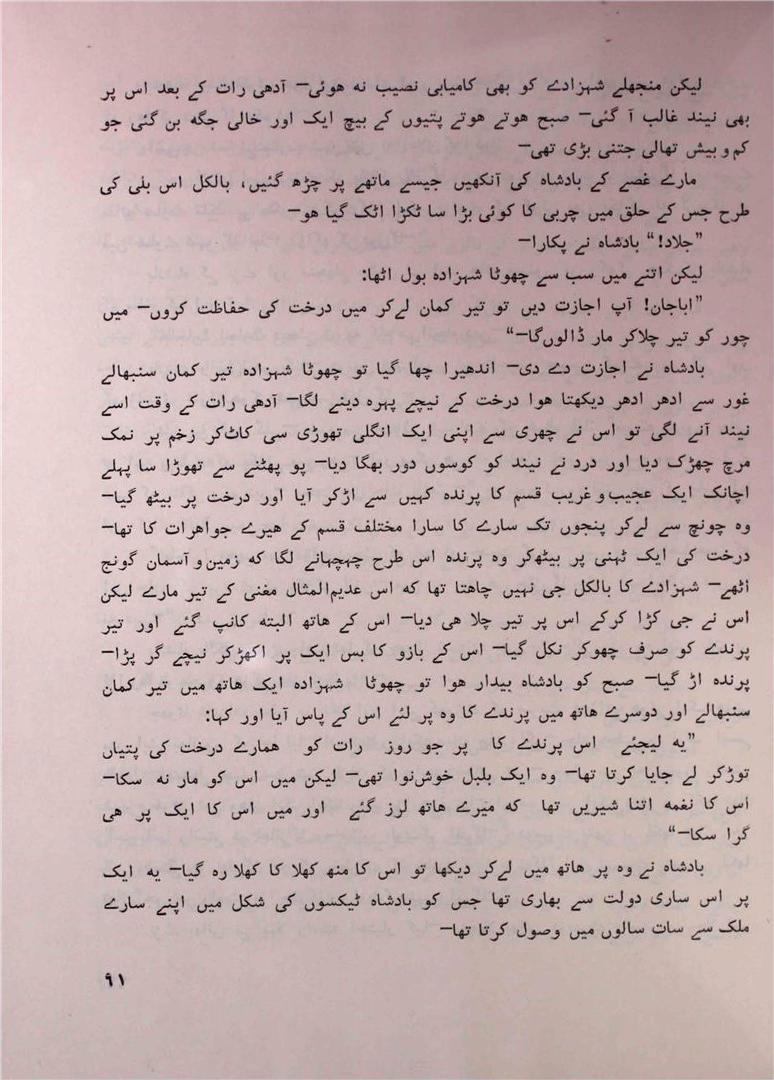 لیکن منجھلے شہزادے کو بھی کامیابی نصیب نه هوئی— آدھی رات کے بعد اس پر
بھی نیند غالب آ گئی— صبح هوتے هوتے پتیوں کے بیچ ایک اور خالی جگه بن گئی جو
کم و بیش تھالی جتنی بڑی تھی—
مارے غصے کے بادشاه کی آنکھیں جیسے ماتھے پر چڑھ گئیں، بالکل اس بلی کی
طرح جس کے حلق میں چربی کا کوئی بڑا سا ٹکڑا اٹک گیا هو—
”جلاد!“ بادشاه نے پکارا—
لیکن اتنے میں سب سے چھوٹا شہزاده بول اٹھا:
”اباجان! آپ اجازت دیں تو تیر کمان لے کر میں درخت کی حفاظت کروں— میں
چور کو تیر چلاکر مار ڈالوں گا—“
بادشاه نے اجازت دے دی— اندھیرا چھا گیا تو چھوٹا شہزاده تیر کمان سنبھالے
غور سے ادھر ادھر دیکھتا هوا درخت کے نیچے پہره دینے لگا— آدھی رات کے وقت اسے
نیند آنے لگی تو اس نے چھری سے اپنی ایک انگلی تھوڑی سی کاٹ کر زخم پر نمک
مرچ چھڑک دیا اور درد نے نیند کو کوسوں دور بھگا دیا— پو پھٹنے سے تھوڑا سا پہلے
اچانک ایک عجیب و غریب قسم کا پرنده کہیں سے اڑکر آیا اور درخت پر بیٹھ گیا—
وه چونچ سے لے کر پنجوں تک سارے کا سارا مختلف قسم کے هیرے جواهرات کا تھا—
درخت کی ایک ٹہنی پر بیٹھ کر وه پرنده اس طرح چہچہانے لگا که زمین و آسمان گونج
اٹھے— شہزادے کا بالکل جی نہیں چاهتا تھا که اس عدیم المثال مغنی کے تیر مارے لیکن
اس نے جی کڑا کرکے اس پر تیر چلا هی دیا— اس کے هاتھ البته کانپ گئے اور تیر
پرندے کو صرف چھوکر نکل گیا— اس کے بازو کا بس ایک پر اکھڑکر نیچے گر پڑا—
پرنده اڑ گیا— صبح کو بادشاه بیدار هوا تو چھوٹا شہزاده ایک هاتھ میں تیر کمان
سنبھالے اور دوسرے هاتھ میں پرندے کا وه پر لئے اس کے پاس آیا اور کہا:
”یه لیجئے اس پرندے کا پر جو روز رات کو همارے درخت کی پتیاں
توڑکر لے جایا کرتا تھا— وه ایک بلبل خوش نوا تھی— لیکن میں اس کو مار نه سکا—
اس کا نغمه اتنا شیریں تھا که میرے هاتھ لرز گئے اور میں اس کا ایک پر هی
گرا سکا—“
بادشاه نے وه پر هاتھ میں لے کر دیکھا تو اس کا منھ کھلا کا کھلا ره گیا— یه ایک
پر اس ساری دولت سے بھاری تھا جس کو بادشاه ٹیکسوں کی شکل میں اپنے سارے
ملک سے سات سالوں میں وصول کرتا تھا—
۹۱